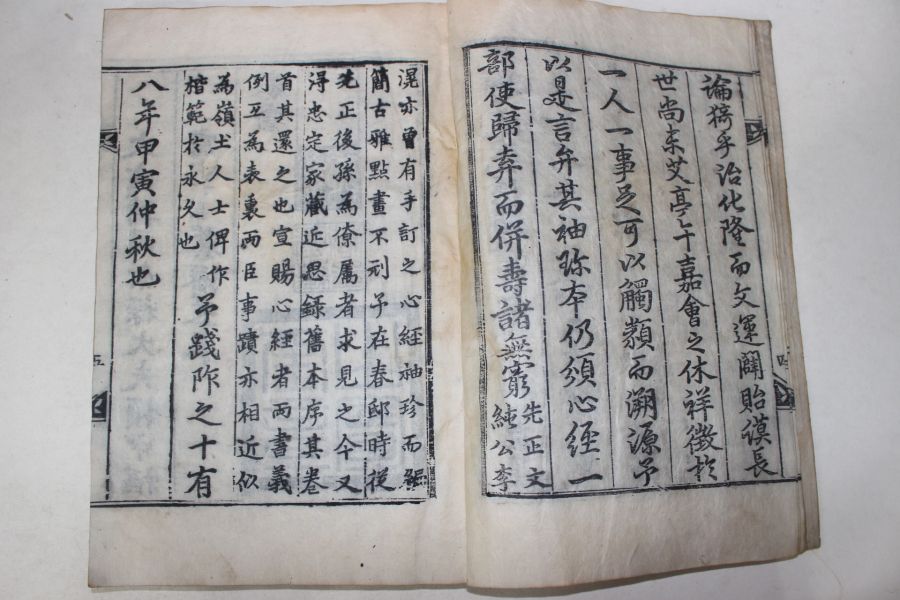 論猗乎治化隆而文運闢貽謨長
世尚東艾亭午嘉會之休祥徵於
一人一事足可以觸類而溯源予
以是言弁其袖珍本仍頒心經一
部使歸弆而併壽諸無窮
先正文
純公李
四
滉亦曾有手訂之心經袖珍而鋟
簡古雅點畫不刓予在春邸時從
先正後孫為僚屬者求見之今又
淂忠定家藏近思錄舊本序其卷
首其還之也宣賜心經者兩書義
例互為表裏兩臣事蹟亦相近似
為嶺土人士俾作
楷範於永久也
予踐阼之十有
八年甲寅仲秋也
五